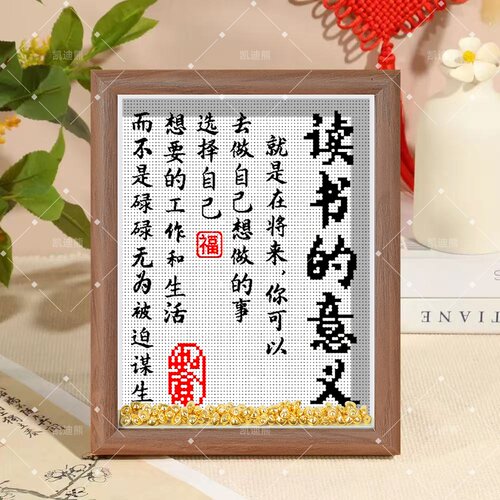 读书的意义
就是在将来，你可以
去做自己想做的事
选择自己
想要的工作和生活
而不是碌碌无为被迫谋生
福
TIANE
凯迪熊